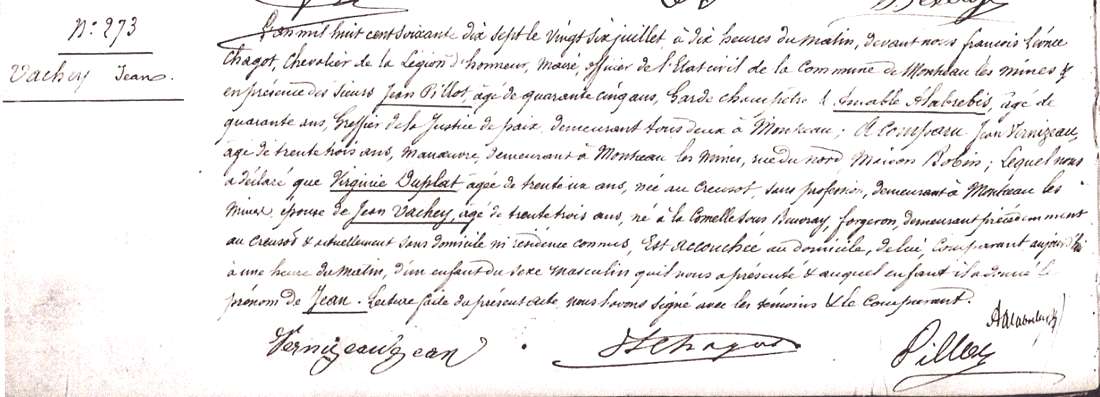 N: 273
Vachey Jean.
L'an mil huit cent soixante dix sept le vingt six juillet, à dix heures du matin, devant nous françois Léonce
Chagot, Chevalier de la Légion d'honneur, Maire, officier de l'Etat civil de la Commune de Montceau les mines &
en présence des sieurs Jean Pillot, âgé de quarante cinq ans, Garde champêtre & Amable Alabrebis, âgé de
quarante ans, Greffier de la Justice de paix, demeurant tous deux à Montceau; A Comparu Jean Vernizeau,
âgé de trente trois ans, manœuvre, demeurant à Montceau les Mines, rue du nord Maison Bobin; Lequel nous
a déclaré que Virginie Duplat âgée de trente un ans, née au Creusot, sans profession, demeurant à Montceau les
Mines, épouse de Jean Vachey, âgé de trente trois ans, né à la Comelle sous Beuvray, forgeron, demeurant précédemment
au Creusot & actuellement sans domicile ni résidence connus, Est accouchée au domicile, de lui, Comparant aujourd'hui
à une heure du matin, d'un enfant du sexe masculin qu'il nous a présenté & auquel enfant il a donné le
prénom de Jean. Lecture faite du présent acte nous l'avons signé avec les témoins & le Comparant.
Vernizeau Jean
Chagot
Alabrebis
Pillot